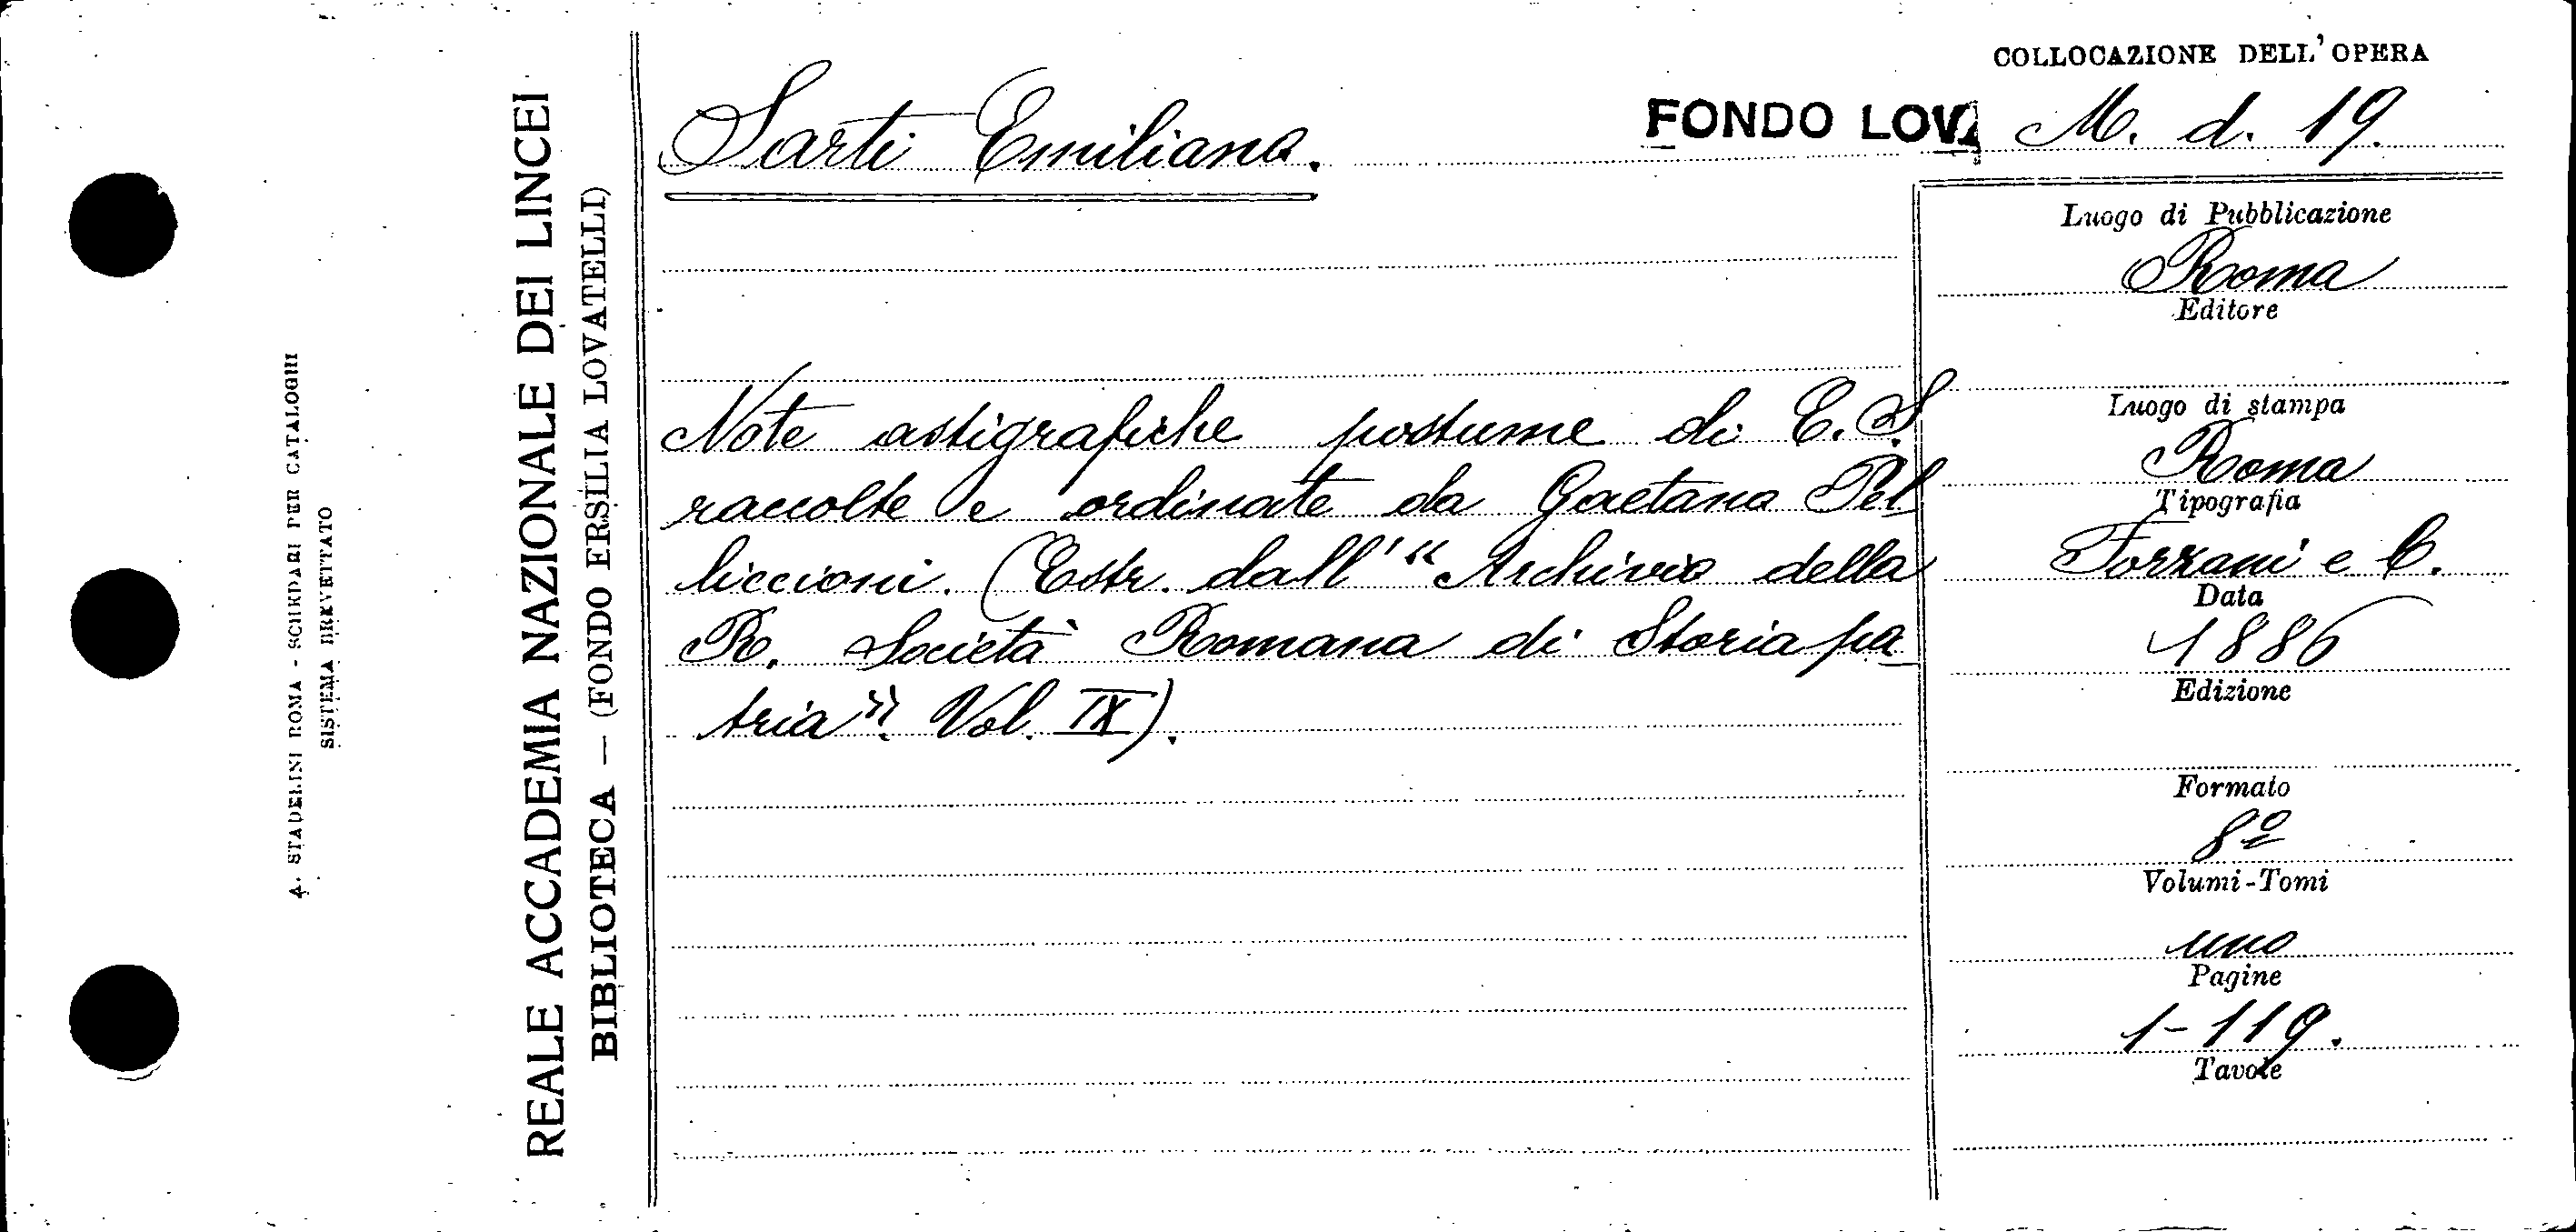 COLLOCAZIONE DELL'OPERA
Sarti Emiliana.
FONDO LOV. M. d. 19.
Note astigrafiche postume di E. S.
raccolte e ordinate da Gaetana Pel
liccioni. (Estr. dall' "Archivio della
R. Società Romana di Storia pa
tria". Vol. IX).
Luogo di Pubblicazione
Roma
Editore
Luogo di stampa
Roma
Tipografia
Forzani e C.
Data
1886
Edizione
Formato
8º
Volumi-Tomi
uno
Pagine
1-119.
Tavole
REALE ACCADEMIA NAZIONALE DEI LINCEI
BIBLIOTECA — (FONDO ERSILIA LOVATELLI)
A. STADERINI ROMA - SCHEDARI PER CATALOGHI
SISTEMA BREVETTATO